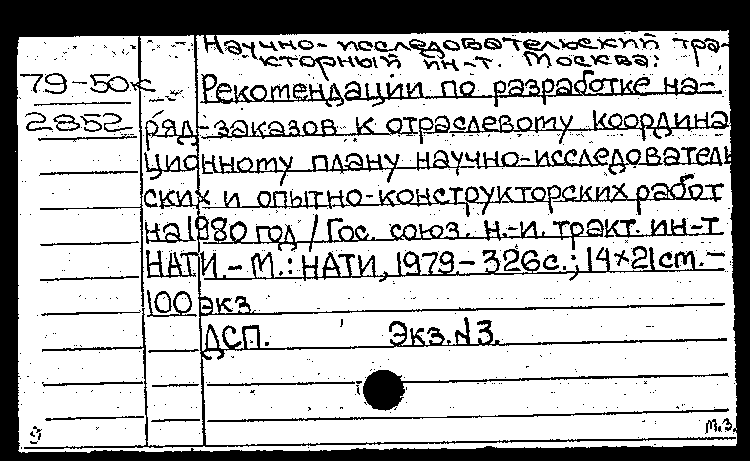 Научно-исследовательский тра-
кторный ин-т. Москва.
79-50к
Рекомендации по разработке на-
2852
ряд-заказов к отраслевому координа
ционному плану научно-исследователь
ских и опытно-конструкторских работ
на 1980 год / Гос. союз. н.-и. тракт. ин-т
НАТИ.- М.: НАТИ, 1979.- 326 с.; 14×21 cm.-
100 экз
ДСП. Экз. N3.
9 м.з.